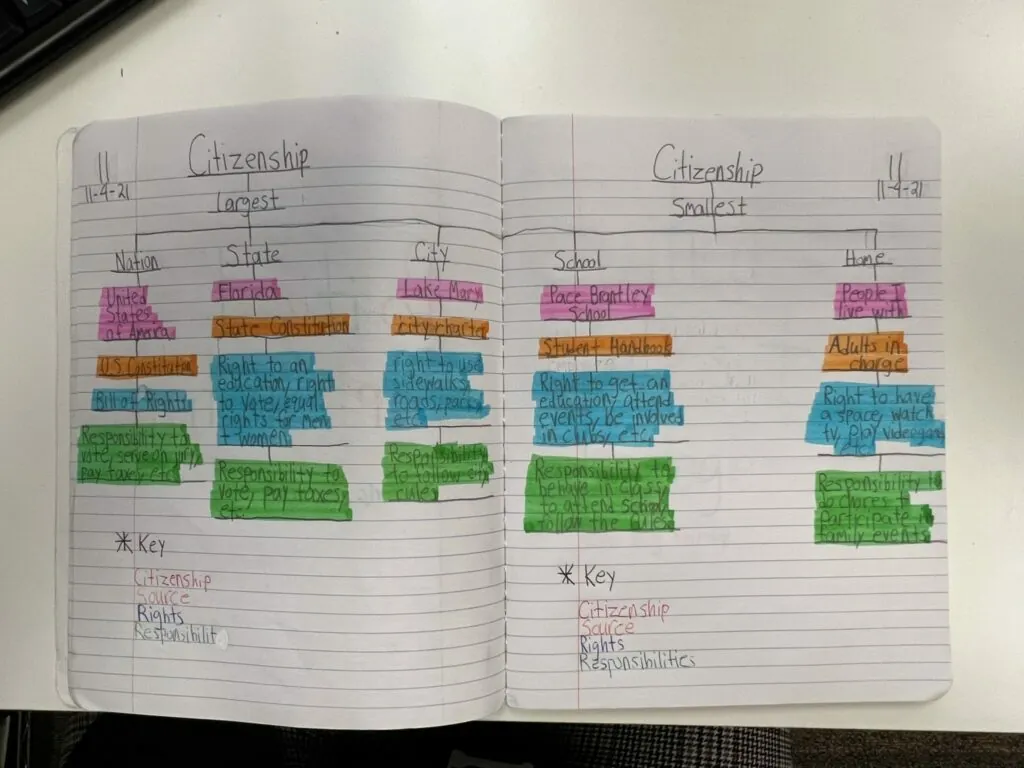 11
11-4-21
Citizenship
Largest
Nation
United
States
of Amorica
U.S Constitution
Bill of Rights
Responsibility to
vote, serve on jury
pay taxes, etc
State
Florida
State Constitution
Right to an
education, right
to vote, equal
rights for men
+ women
Responsibility to
vote, pay taxes,
etc.
City
Lake Mary
city charter
right to use
sidewalks,
roads, parks,
etc
Responsibility
to follow city
rules
* Key
Citizenship
Source
Rights
Responsibilit
Citizenship
Smallest
11
11-4-21
School
Pace Brantley
School
Student Handbook
Right to get an
education, attend
events, be involved
in clubs, etc.
Responsibility to
behave in class,
to attend school,
follow the rules
Home
People I
live with
Adults in
charge
Right to have
a space, watch
tv, play videogames
etc.
Responsibility
to chores, to
participate in
family events
* Key
Citizenship
Source
Rights
Responsibilities